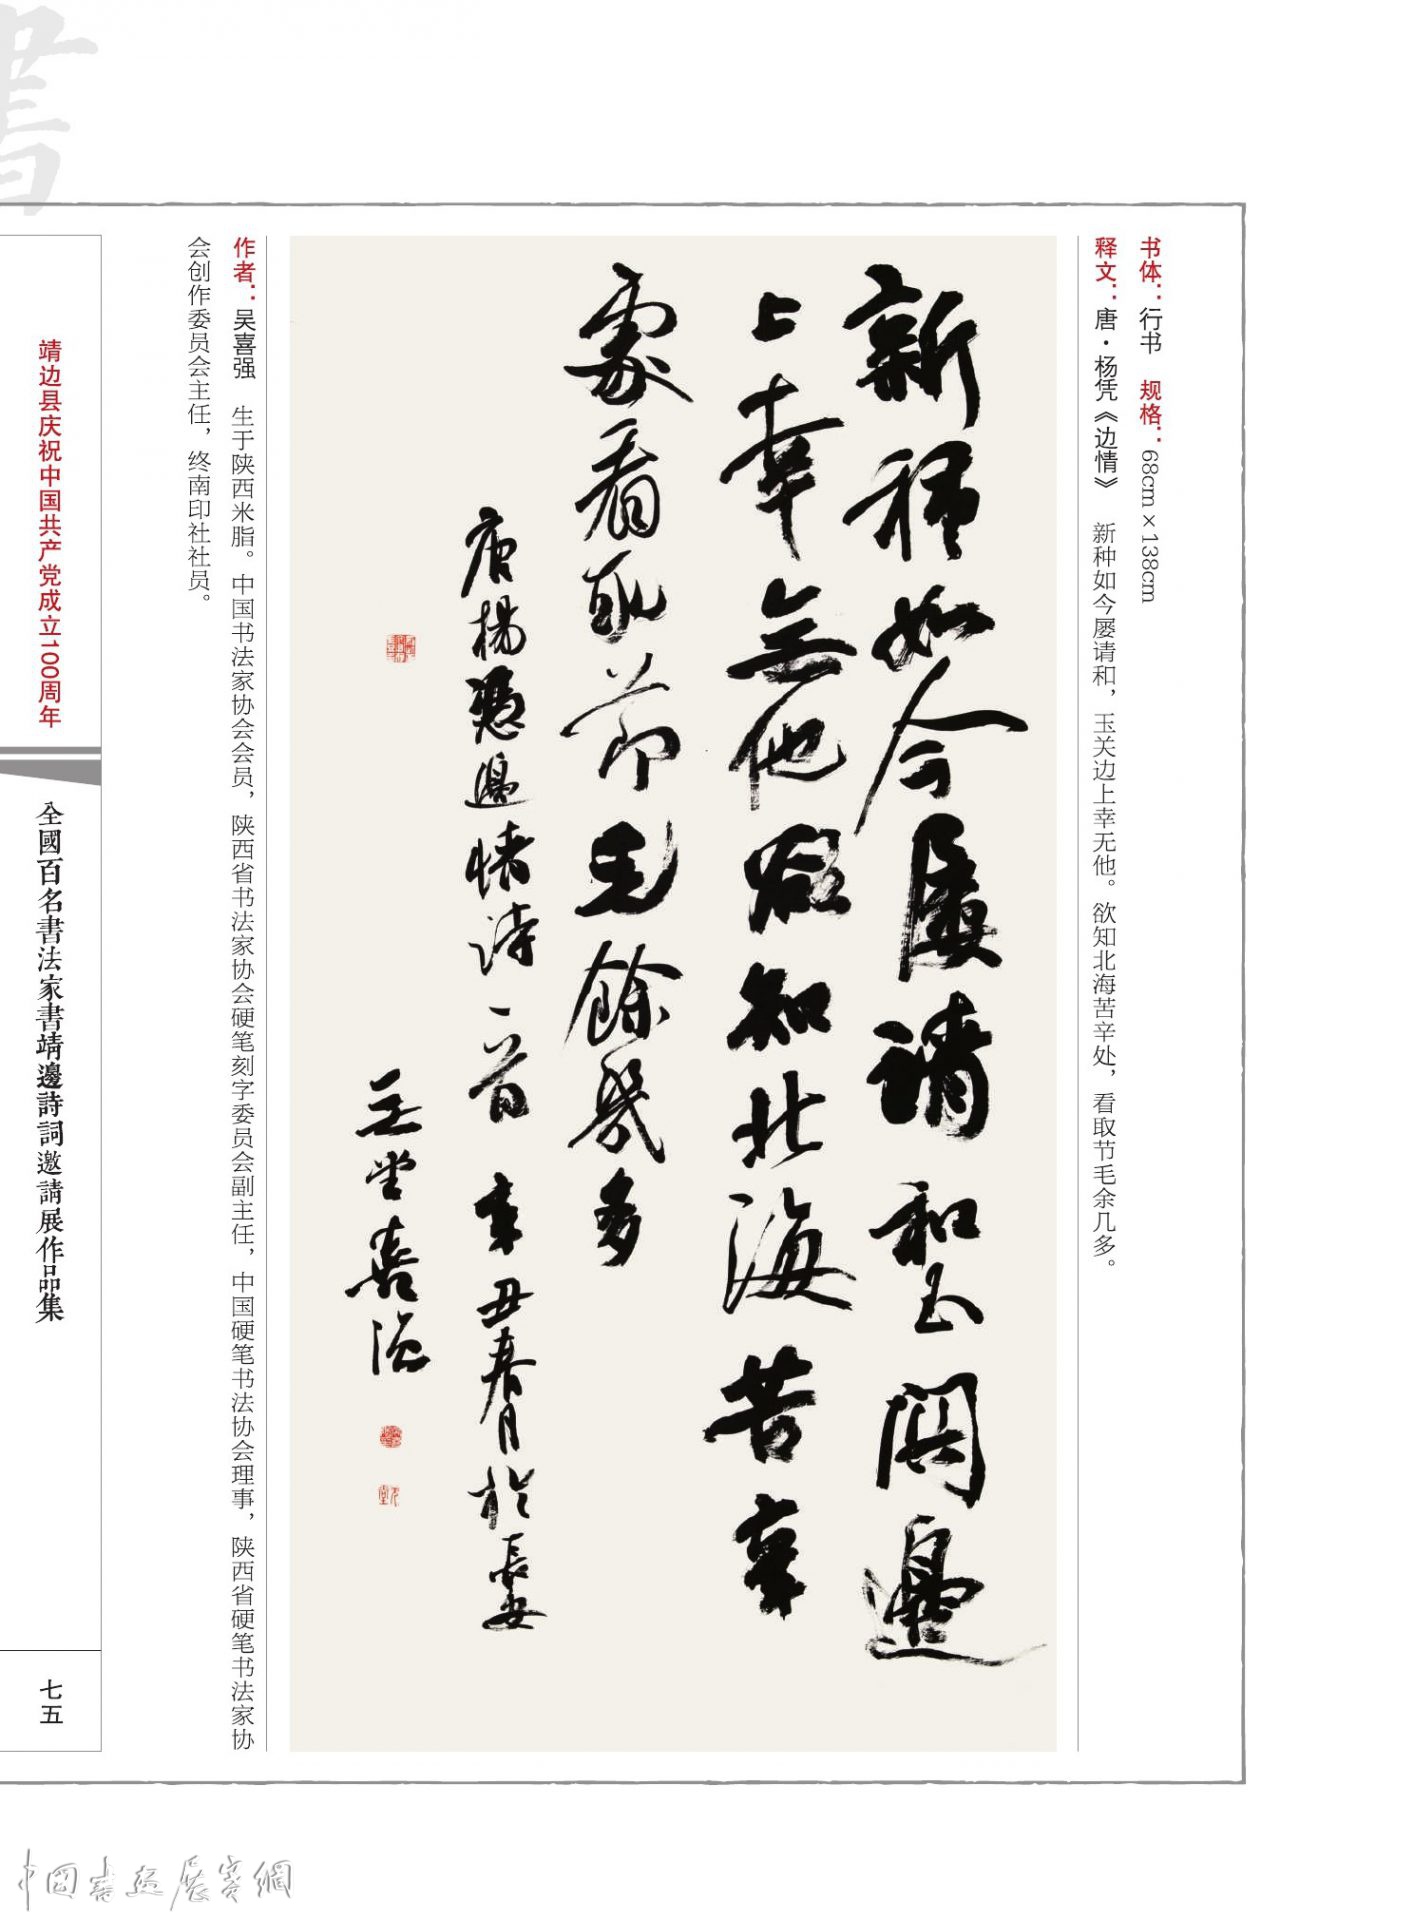 书体：行书　规格：68cm×138cm
释文：唐·杨凭《边情》　新种如今屡请和，玉关边上幸无他。欲知北海苦辛处，看取节毛余几多。
新種如今屢請和玉關邊
上幸無他欲知北海苦辛
處看取節毛餘幾多
唐楊憑邊情詩一首 辛丑春月於長安
喜強
作者：吴喜强　生于陕西米脂。中国书法家协会会员，陕西省书法家协会硬笔刻字委员会副主任，中国硬笔书法协会理事，陕西省硬笔书法家协
会创作委员会主任，终南印社社员。
靖边县庆祝中国共产党成立100周年
全國百名書法家書靖邊詩詞邀請展作品集
七五
書
中國書画展賽網